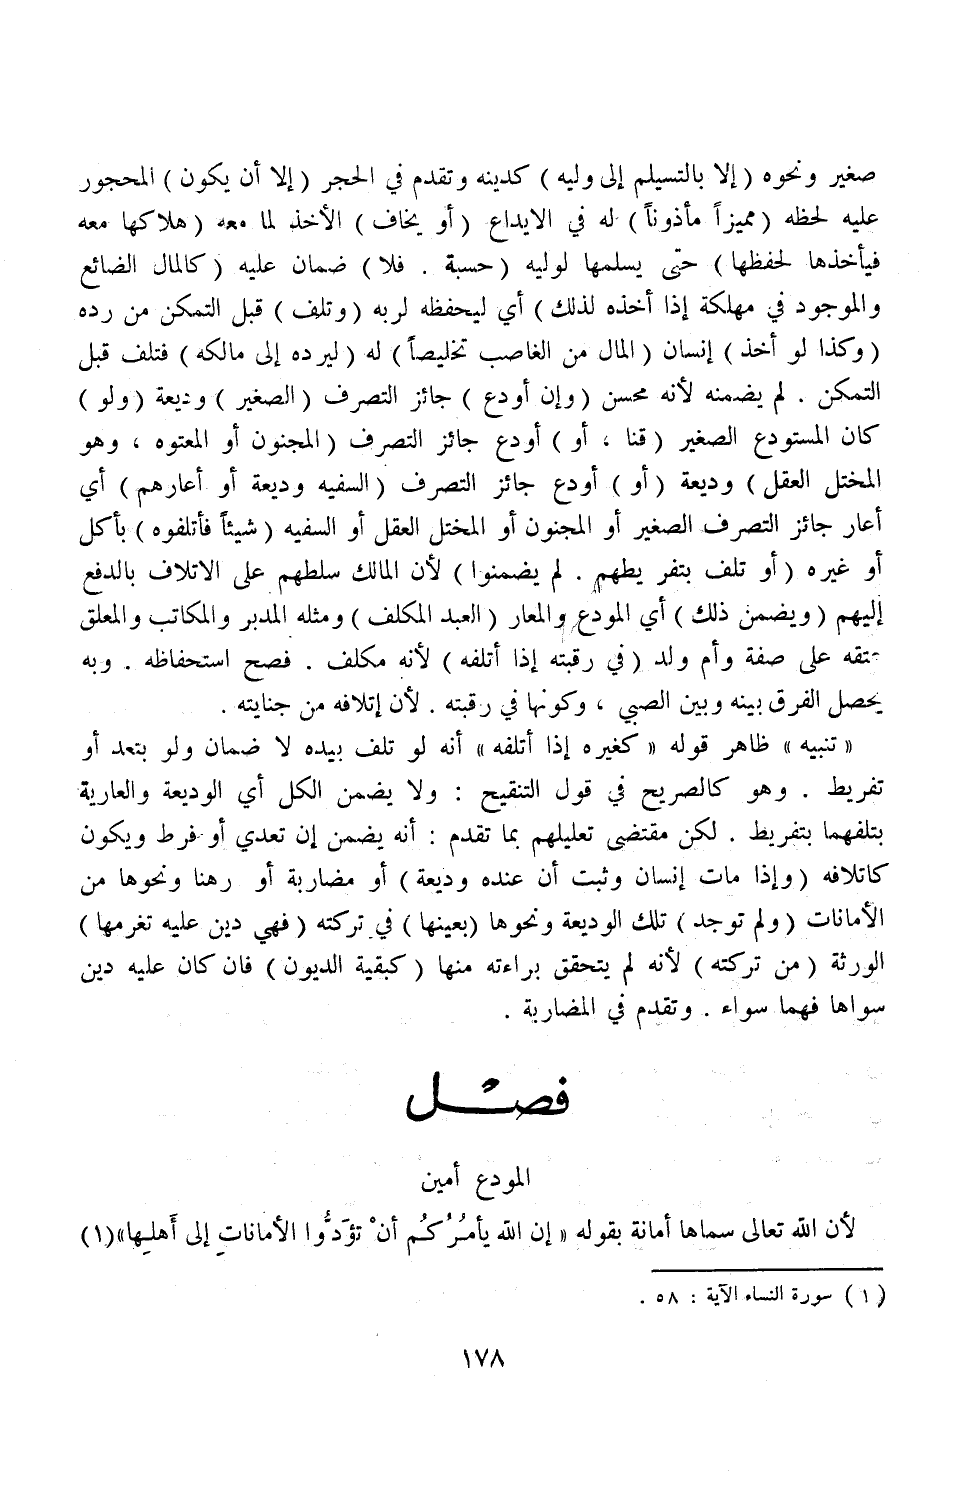 صغير ونحوه ( إلا بالتسيلم إلى وليه ) كدينه وتقدم في الحجر ( إلا أن يكون ) المحجور
عليه لحظه ( مميزاً مأذوناً ) له في الايداع ( أو يخاف ) الأخذ لما معه ( هلاكها معه
فيأخذها لحفظها ) حتى يسلمها لوليه ( حسبة . فلا ) ضمان عليه ( كالمال الضائع
والموجود في مهلكة إذا أخذه لذلك ) أي ليحفظه لربه ( وتلف ) قبل التمكن من رده
( وكذا لو أخذ ) إنسان ( المال من الغاصب تخليصاً ) له ( ليرده إلى مالكه ) فتلف قبل
التمكن . لم يضمنه لأنه محسن ( وإن أودع ) جائز التصرف ( الصغير ) وديعة ( ولو )
كان المستودع الصغير ( قنا ، أو ) أودع جائز التصرف ( المجنون أو المعتوه ، وهو
المختل العقل ) وديعة ( أو ) أودع جائز التصرف ( السفيه وديعة أو أعارهم ) أي
أعار جائز التصرف الصغير أو المجنون أو المختل العقل أو السفيه ( شيئاً فأتلفوه ) بأكل
أو غيره ( أو تلف بتفريطهم . لم يضمنوا ) لأن المالك سلطهم على الاتلاف بالدفع
إليهم ( ويضمن ذلك ) أي المودع والمعار ( العبد المكلف ) ومثله المدبر والمكاتب والمعلق
عتقه على صفة وأم ولد ( في رقبته إذا أتلفه ) لأنه مكلف . فصح استحفاظه . وبه
يحصل الفرق بينه وبين الصبي ، وكونها في رقبته . لأن إتلافه من جنايته .
« تنبيه » ظاهر قوله « كغيره إذا أتلفه » أنه لو تلف بيده لا ضمان ولو بتعد أو
تفريط . وهو كالصريح في قول التنقيح : ولا يضمن الكل أي الوديعة والعارية
بتلفهما بتفريط . لكن مقتضى تعليلهم بما تقدم : أنه يضمن إن تعدي أو فرط ويكون
كاتلافه ( وإذا مات إنسان وثبت أن عنده وديعة ) أو مضاربة أو رهنا ونحوها من
الأمانات ( ولم توجد ) تلك الوديعة ونحوها ( بعينها ) في تركته ( فهي دين عليه تغرمها )
الورثة ( من تركته ) لأنه لم يتحقق براءته منها ( كبقية الديون ) فان كان عليه دين
سواها فهما سواء . وتقدم في المضاربة .
فصل
المودع أمين
لأن الله تعالى سماها أمانة بقوله « إن الله يأمُرُكُم أنْ تؤَدُّوا الأماناتِ إلى أَهلِها»(١)
( ١ ) سورة النساء الآية : ٥٨ .
١٧٨